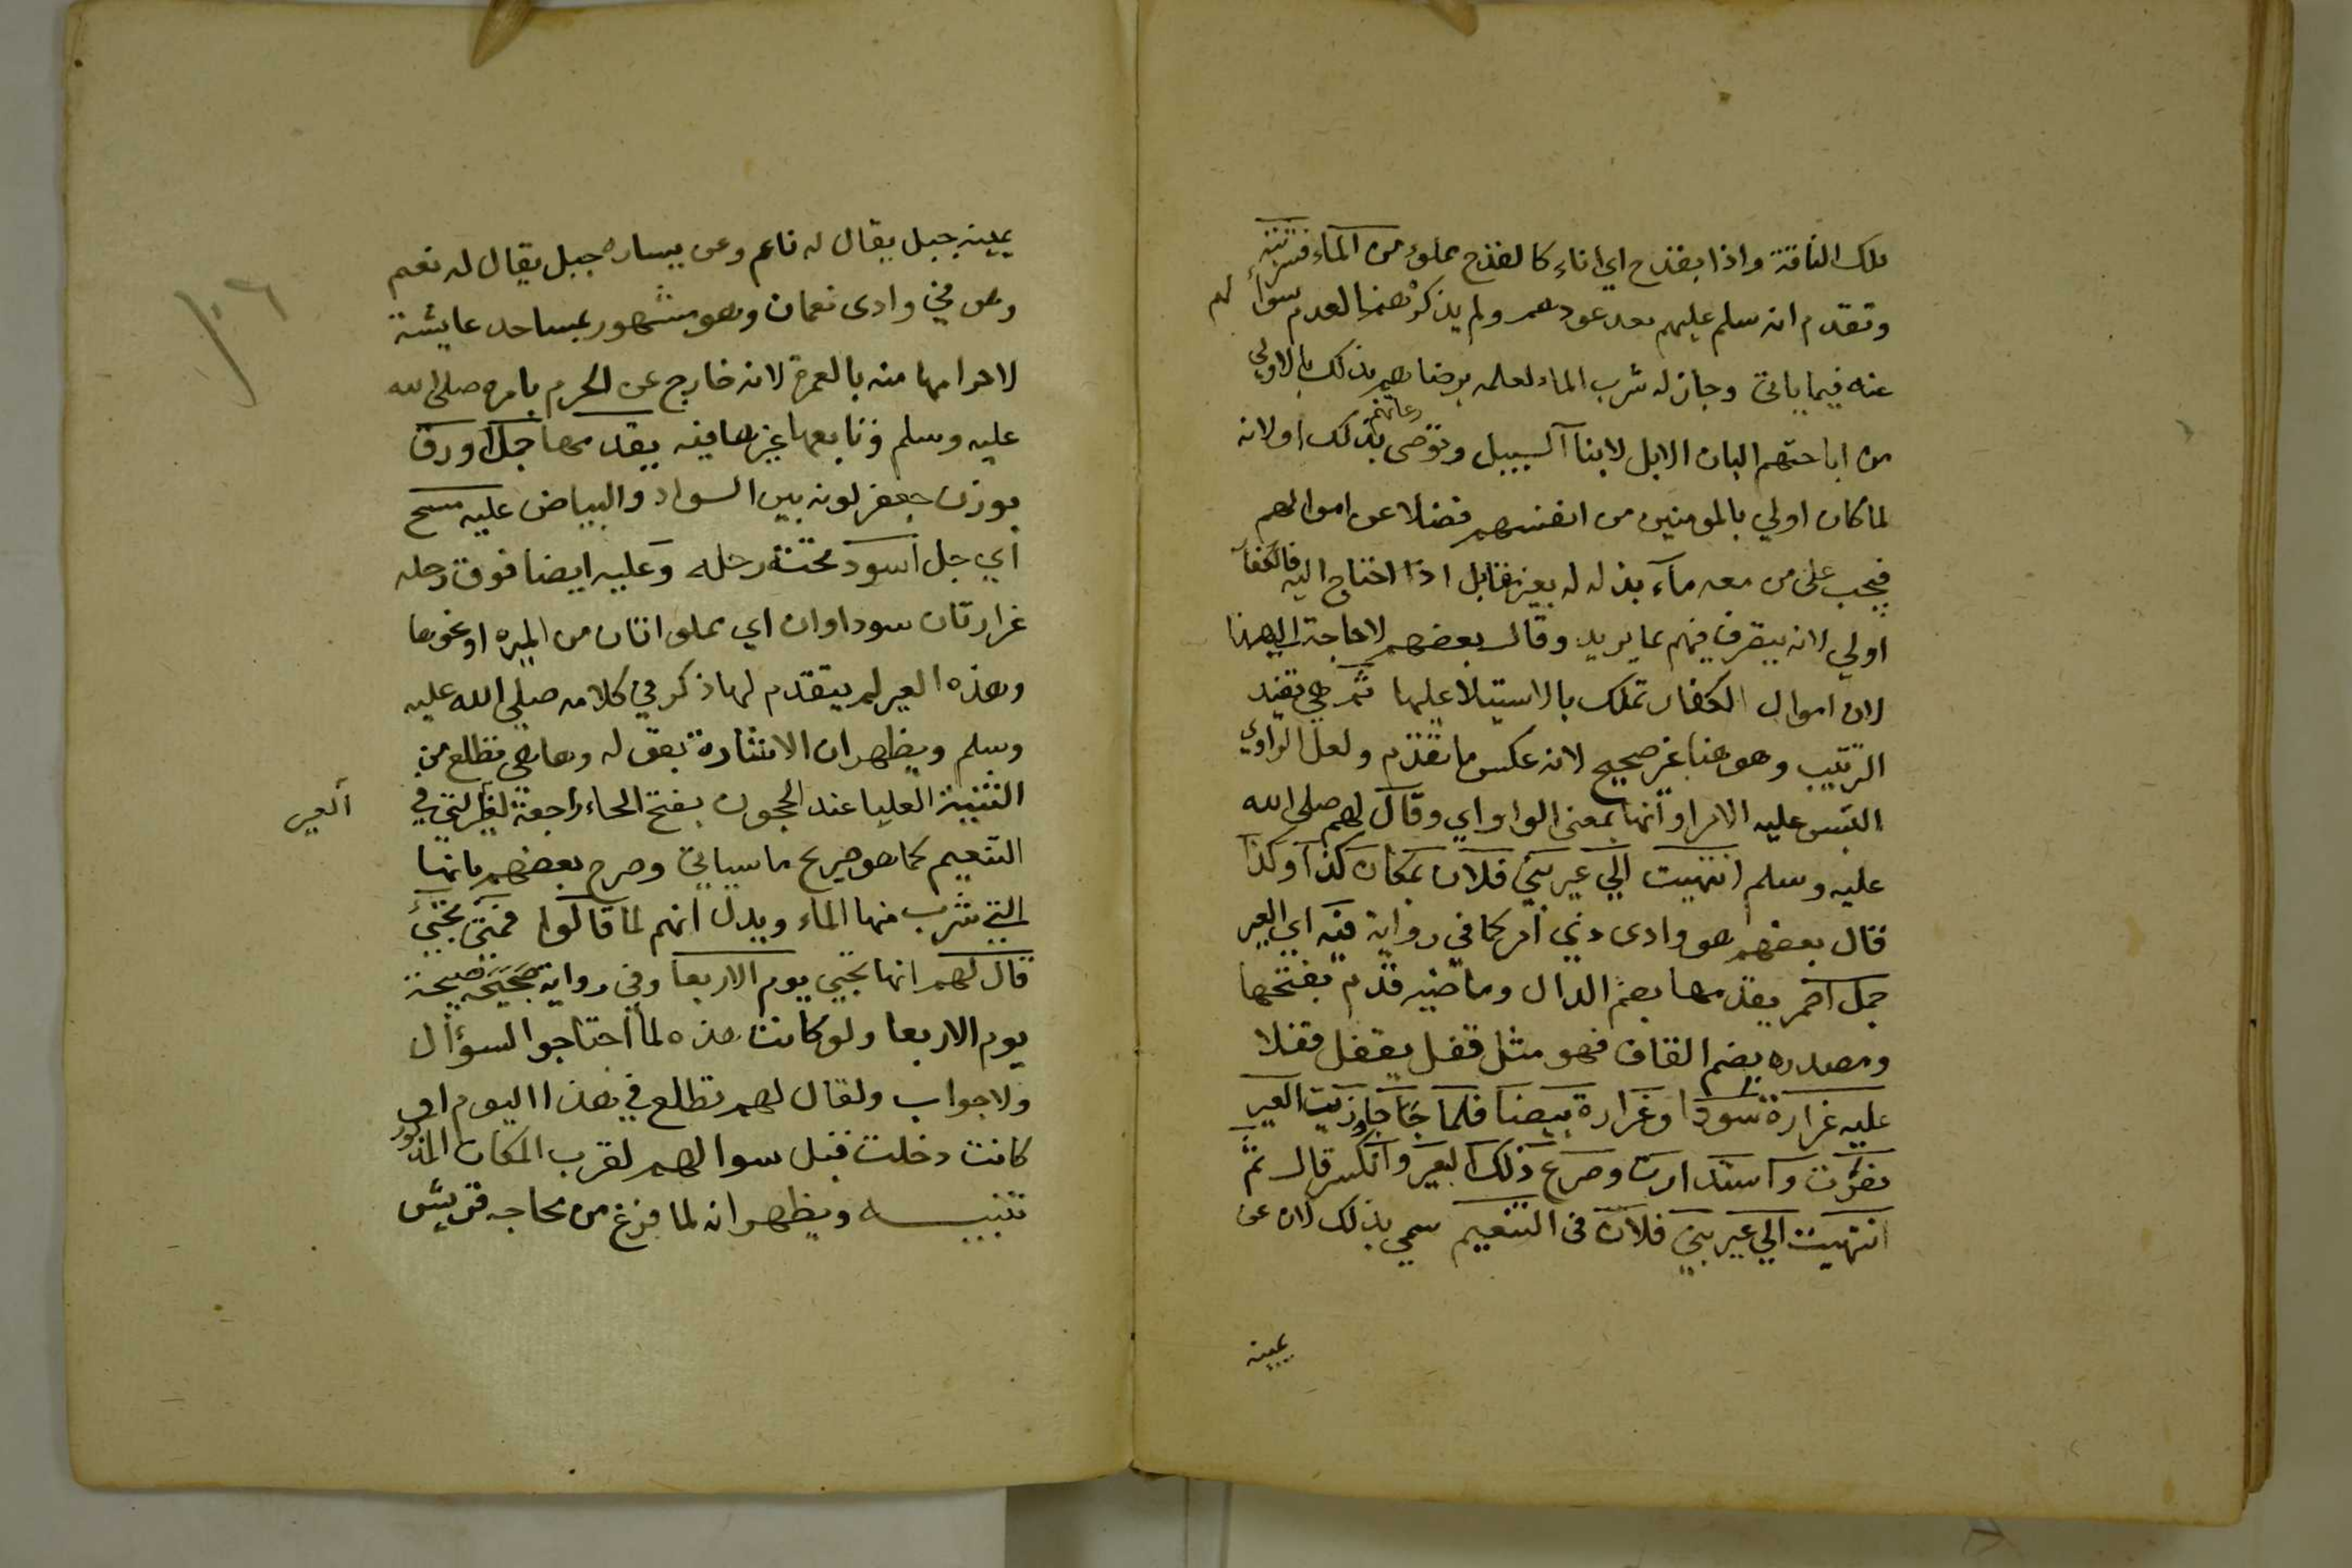 تلك الناقة واذا بقدح اي اناء كالقدح مملوء من الماء فشربته
وتقدم انه سلم عليهم بعد عودهم ولم يذكر هنا لعدم سؤالهم
عنه فيما ياتى وجاز له شرب الماء لعلمه برضاهم بذلك بالاولي
من اباحتهم البان الابل لابنا السبيل وتوصى رعاتهم بذلك اولانه
لما كان اولي بالمومنين من انفسهم فضلا عن اموالهم
فيجب على من معه ماء بذله له بغير مقابل اذا احتاج اليه فالكفار
اولي لانه يتصرف فيهم بما يريد وقال بعضهم لا حاجة الي هذا
لان اموال الكفار تملك بالاستيلا عليها ثم هي تفيد
الترتيب وهو هنا غير صحيح لانه عكس ما تقدم ولعل الراوي
التبس عليه الامر او انها بمعنى الواو اي وقال لهم صلى الله
عليه وسلم انتهيت الي عير بني فلان بمكان كذا وكذا
قال بعضهم هو وادى ذي امر كما في رواية فيه اي العير
جمل احمر يقدمها بضم الدال وماضيه قدم بفتحها
ومصدره بضم القاف فهو مثل قفل يقفل قفلا
عليه غرارة سودا وغرارة بيضا فلما جاوزت العير
نفرت واستدارت وصرع ذلك البعير وانكسر قال ثم
انتهيت الي عير بني فلان فى التنعيم سمي بذلك لان عن
يمينه
يمينه جبل يقال له ناعم وعن يساره جبل يقال له نعم
وهو في وادى نعمان وهو مشهور بمساجد عايشة
لاحرامها منه بالعمرة لانه خارج عن الحرم بامره صلى الله
عليه وسلم وتابعها غيرها فيه يقدمها جمل اورق
بوزن جعفر لونه بين السواد والبياض عليه مسح
أي جل اسود تحت رحله وعليه ايضا فوق رحله
غرارتان سوداوان اي مملواتان من الميره او نحوها
وهذه العير لم يتقدم لها ذكر في كلامه صلى الله عليه
وسلم ويظهر ان الاشارة بقوله وها هي تطلع من
الثنية العليا عند الحجون بفتح الحاء راجعة لغير التي في
العير
التنعيم كما هو صريح ما سياتي وصرح بعضهم بانها
التي شرب منها الماء ويدل انهم لما قالوا فمتى تجيئ
قال لهم انها تجيي يوم الاربعا وفي رواية صحيحة صبيحة
يوم الاربعا ولو كانت هذه لما احتاجوا لسؤال
ولا جواب ولقال لهم تطلع في هذا اليوم او
كانت دخلت قبل سوالهم لقرب المكان المذكور
تنبيه ويظهر انه لما فرغ من محاجه قريش
١٠٦